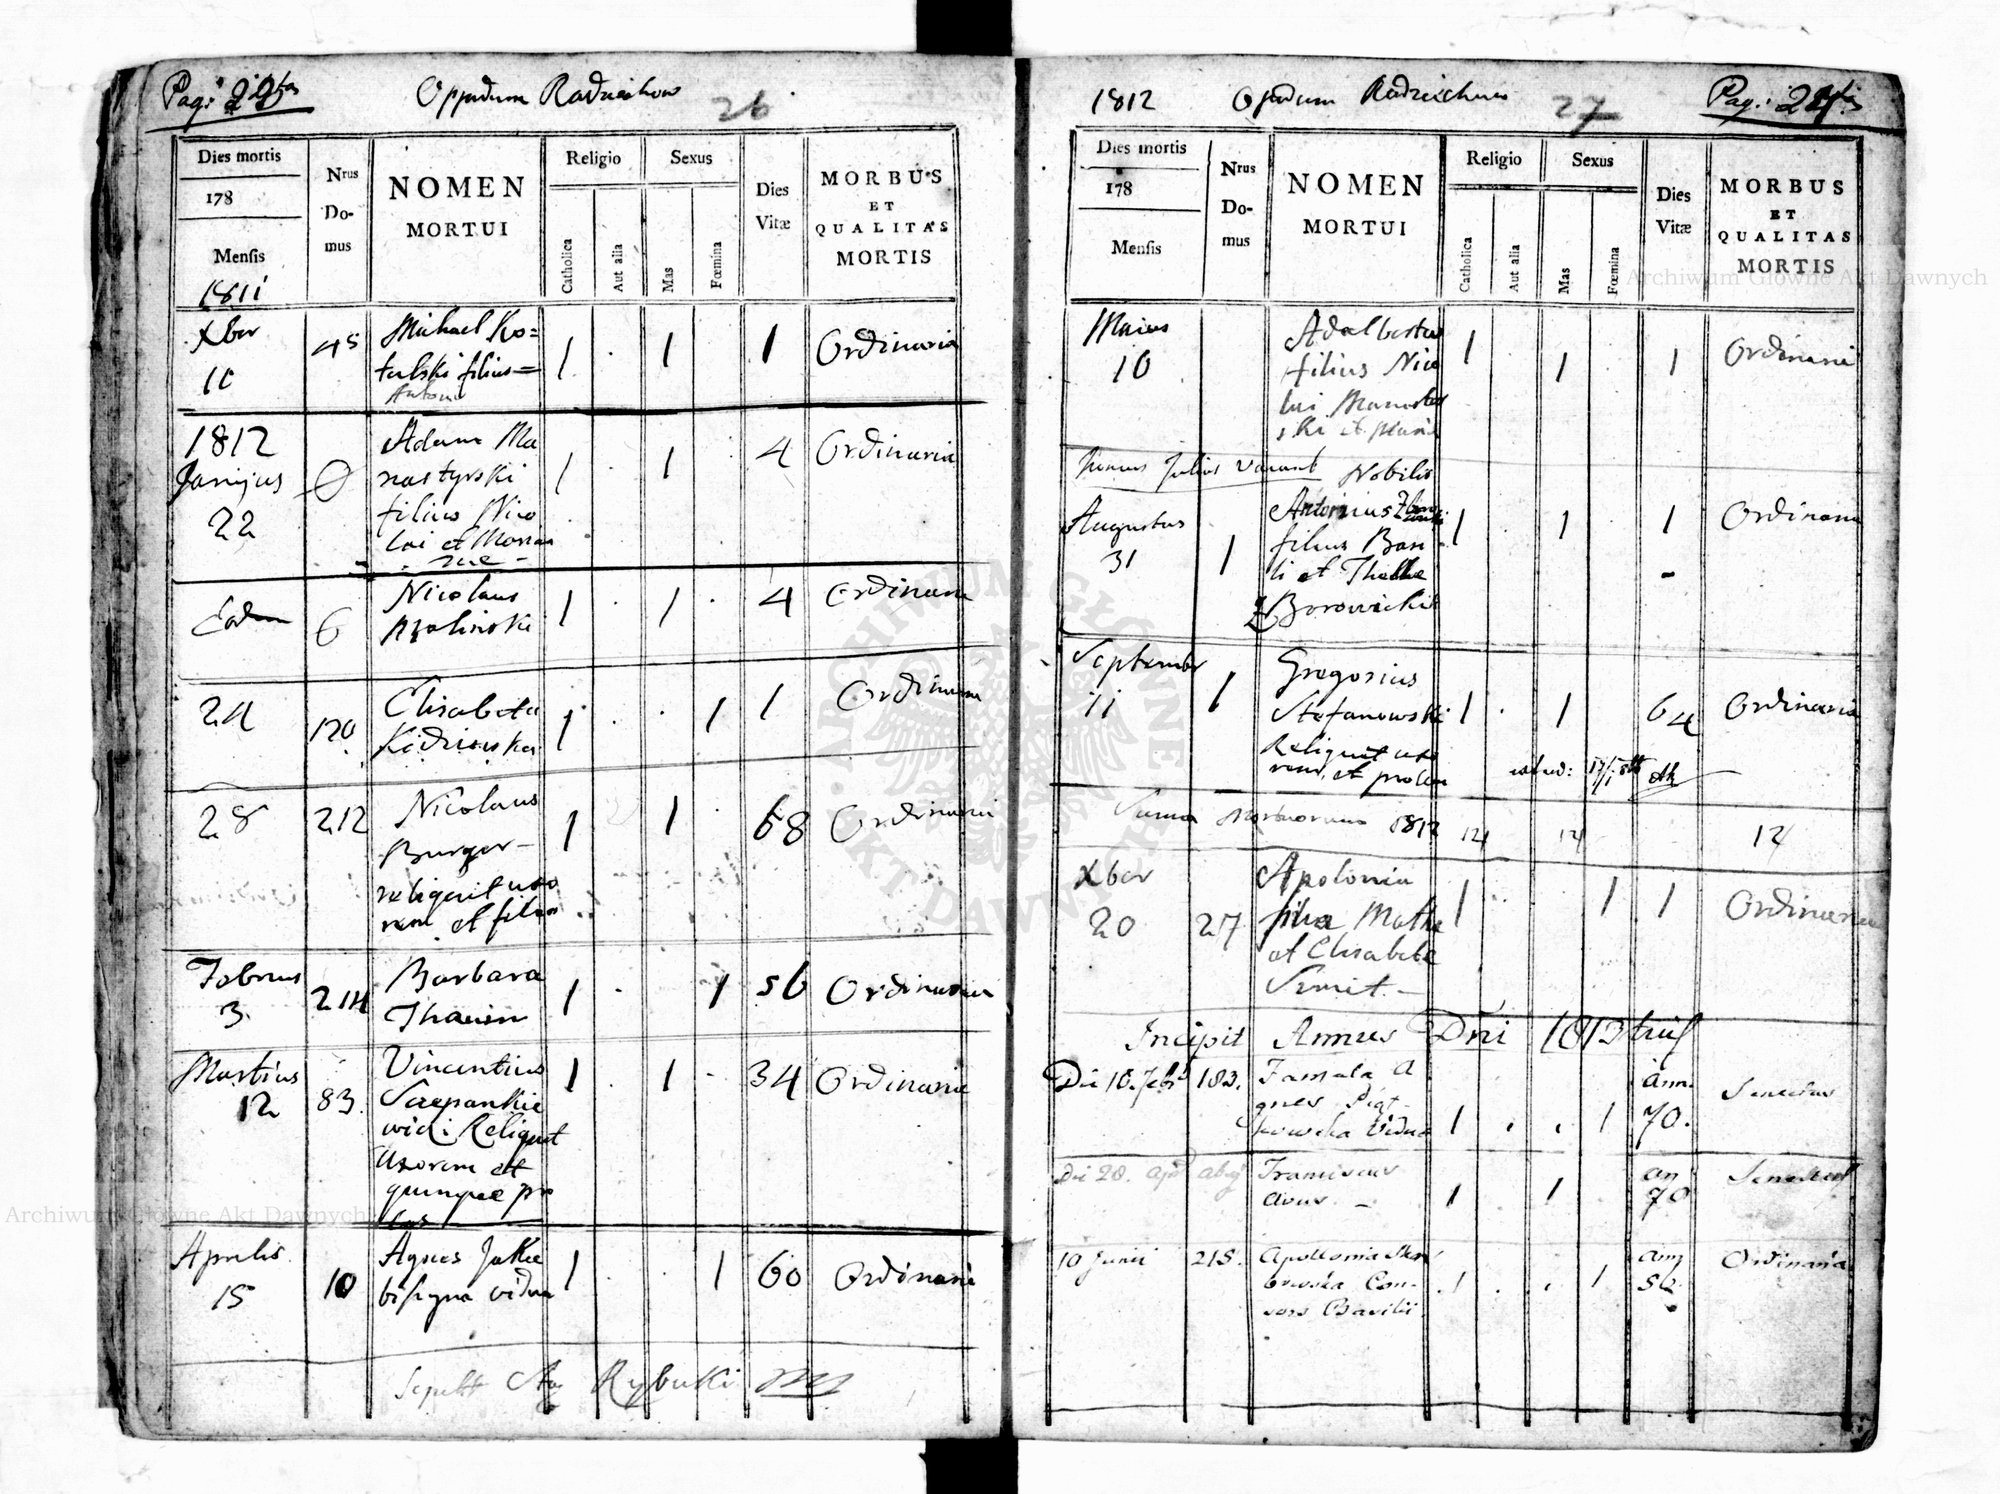 Pag: 22
Oppidum Radziechow
26
Dies mortis
178
Mensis
1811
Nrus
Do-
mus
NOMEN
MORTUI
Religio
Catholica
Aut alia
Sexus
Mas
Fœmina
Dies
Vitæ
MORBUS
ET
QUALITAS
MORTIS
Xber
11
45
Michael Ko=
talski filius=
Antoni
1 . 1 1 Ordinaria
1812
Januius
22
0
Adam Ma
nastyrski
filius Nico
lai et Marian
nae -
1 . 1 4 Ordinaria
Eadem
6
Nicolaus
1 . 1 . 4 Ordinaria
24
120
Elisabeta
1 . . 1 1 Ordinaria
28
212
Nicolaus
Burger-
reliquit uxo
rem et filios
1 1 68 Ordinaria
Februus
3.
214
Barbara
1 . 1 56 Ordinaria
Martius
12
83.
Vincentius
Szczepankie
wicz: Reliquit
Uxorem et
quinque pro
les
1 1 . 34 Ordinaria
Aprilis
15
10
Agnes Jaku
vidua
1 . . 1 60 Ordinaria
Rybicki
1812
Opidum Radziechow
27
Pag: 24
Dies mortis
178
Mensis
Nrus
Do-
mus
NOMEN
MORTUI
Religio
Catholica
Aut alia
Sexus
Mas
Fœmina
Dies
Vitæ
MORBUS
ET
QUALITAS
MORTIS
Maius
10
Adalbertus
filius Nico
lai Manastyr
ski et Maria
1 1 1 Ordinaria
Junius Julius vacant
Augustus
31
1
Nobilis
Antonius
filius Basi-
li et Theklae
Z Borowickich
1 1 1 Ordinaria
September
11
1
Gregorius
Stefanowski
Reliquit uxo
rem, et prolem
1 . 1 64 Ordinaria
Suma Mortuorum 1812 12 12 12
Xber
20
27
Apolonia
filia Mathe
et Elisabete
1 . 1 1 Ordinaria
Incipit Annus Dni 1813tius
Die 10. Feb. 183.
Famula A
gnes Piąt-
kowska Vidua
1 . . 1
ann.
70.
Senectus
Die 20. Apr
Franciscus
1 1
an
70
Senectus
10 Junii 218.
Apollonia
Con-
sors Basilii
. 1 . . 1
Ordinaria
ARCHIWUM GŁÓWNE AKT DAWNYCH
Archiwum Główne Akt Dawnych
Archiwum Główne Akt Dawnych